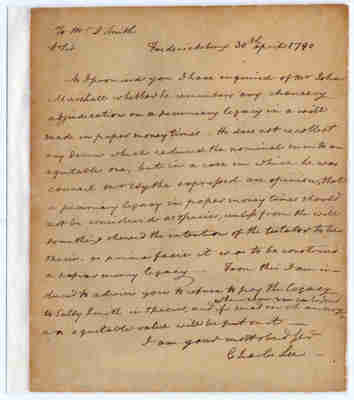 To Mr. J Smith
Sir
Fredericksburg 30th April 1790
As I promised you I have enquired of Mr John
Marshall whether he remembers any chancery
adjudication on a pecuniary legacy in a will
made in paper money times. He does not recollect
any decree which reduced the nominal sum to an
equitable one, but in a case in which he was
council Mr Wythe expressed an opinion, that
a pecuniary legacy in paper money times should
not be considered as specie, unless from the will
something shewed the intention of the testator to be
specie, as prima facie it was to be construed
a paper money legacy. From this I am in-
duced to advise you to refuse to pay the legacy
to Sally Smith in specie, and if
an equitable value will be put on it
I am your most obed Ser
Charles Lee